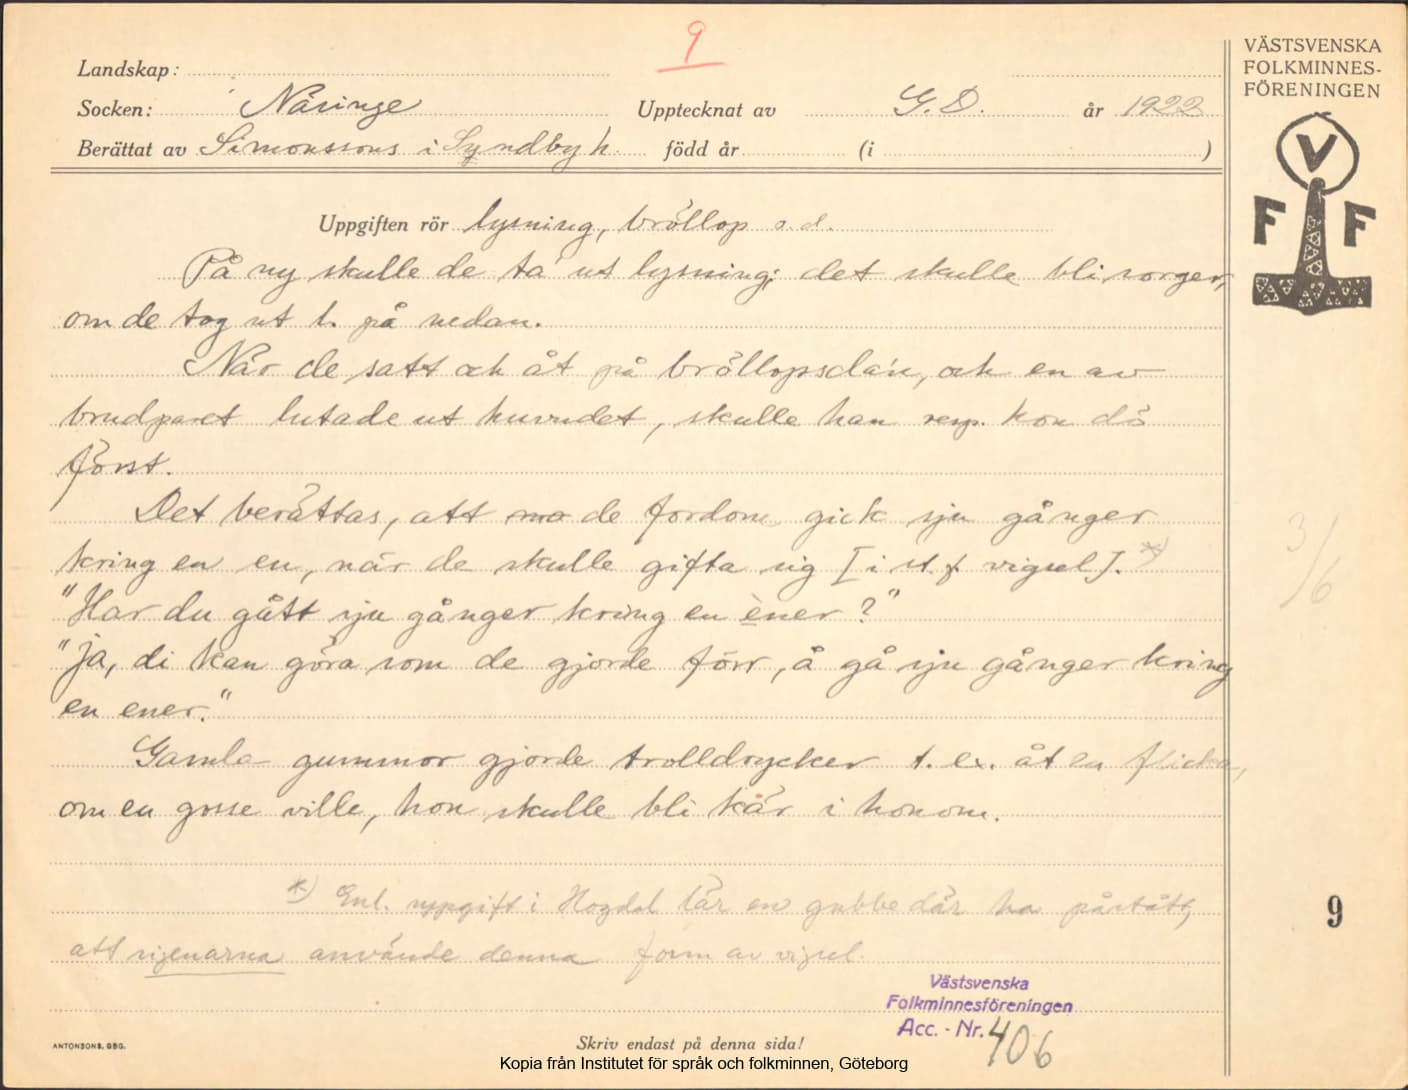 9
Landskap:
Socken: Näsinge Upptecknat av G.D. år 1922
Berättat av Simonssons i Syndbyh. född år (i )
VÄSTSVENSKA
FOLKMINNES-
FÖRENINGEN
V
F F
Uppgiften rör lysning, bröllop o.d.
På ny skulle de ta ut lysning; det skulle bli sorger,
om de tog ut l. på nedan.
När de satt och åt på bröllopsda'n, och en av
brudparet lutade ut huvudet, skulle han resp. hon dö
först.
Det berättas, att de fordom gick sju gånger
kring en en, när de skulle gifta sig [i st. f. vigsel]. *)
"Har du gått sju gånger kring en èner?"
"Ja, di kan göra som de gjorde förr, å gå sju gånger kring
en ener."
Gamla gummor gjorde trolldrycker t. ex. åt en flicka,
om en gosse ville, hon skulle bli kär i honom.
*) Enl. uppgift i Hogdal lär en gubbe där ha påstått,
att zigenarna använde denna form av vigsel.
3/6
9
Västsvenska
Folkminnesföreningen
Acc. - Nr. 406
ANTONSONS, GBG.
Skriv endast på denna sida!
Kopia från Institutet för språk och folkminnen, Göteborg